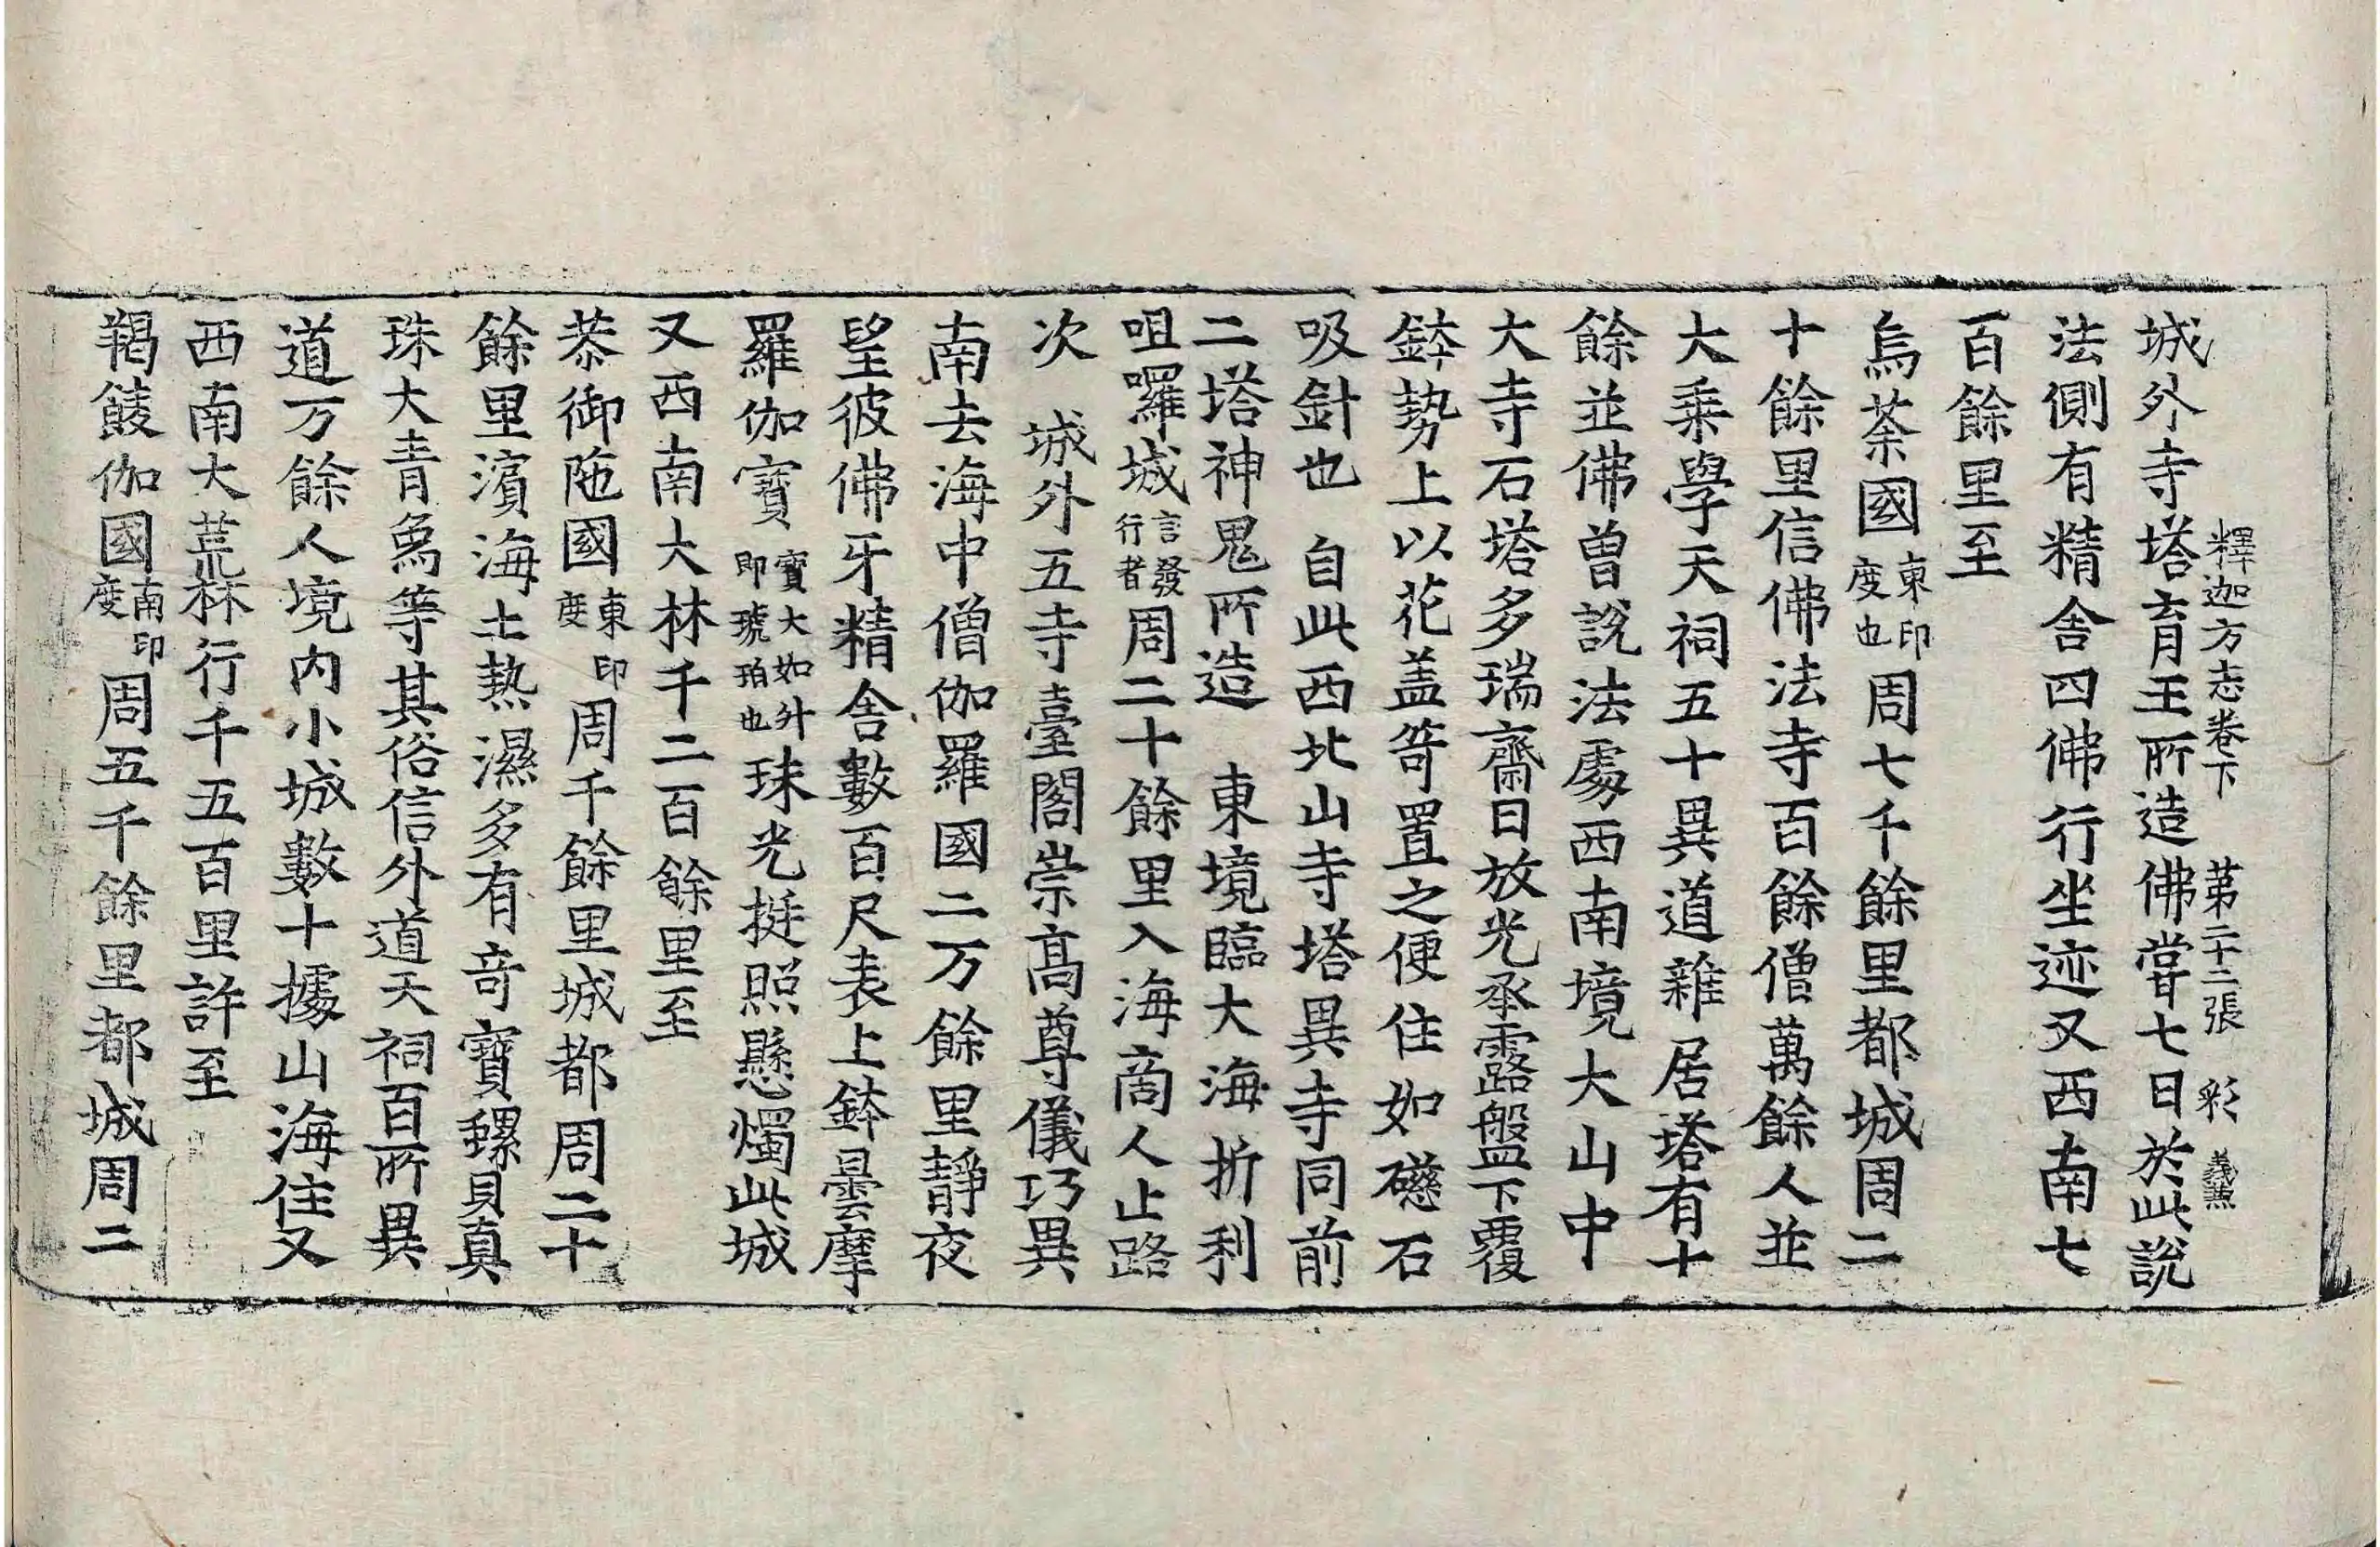 釋迦方志卷下　第二十二張　彩　義熏
城外寺塔育王所造佛嘗七日於此說
法側有精舍四佛行坐迹又西南七
百餘里至
烏荼國東印度也周七千餘里都城周二
十餘里信佛法寺百餘僧萬餘人並
大乘學天祠五十異道雜居塔有十
餘並佛曾說法處西南境大山中
大寺石塔多瑞齋日放光承露盤下覆
鉢勢上以花盖笴置之便住如礠石
吸針也　自此西北山寺塔異寺同前
二塔神鬼所造　東境臨大海折利
呾囉城言發行者周二十餘里入海商人止路
次　城外五寺臺閣崇高尊儀巧異
南去海中僧伽羅國二万餘里靜夜
望彼佛牙精舍數百尺表上鉢曇摩
羅伽寶寶大如升即琥珀也珠光挺照懸燭此城
又西南大林千二百餘里至
恭御陁國東印度周千餘里城都周二十
餘里濱海土熱濕多有奇寶螺貝真
珠大青象等其俗信外道天祠百所異
道万餘人境内小城數十據山海住又
西南大荒林行千五百里許至
羯䬋伽國南印度周五千餘里都城周二